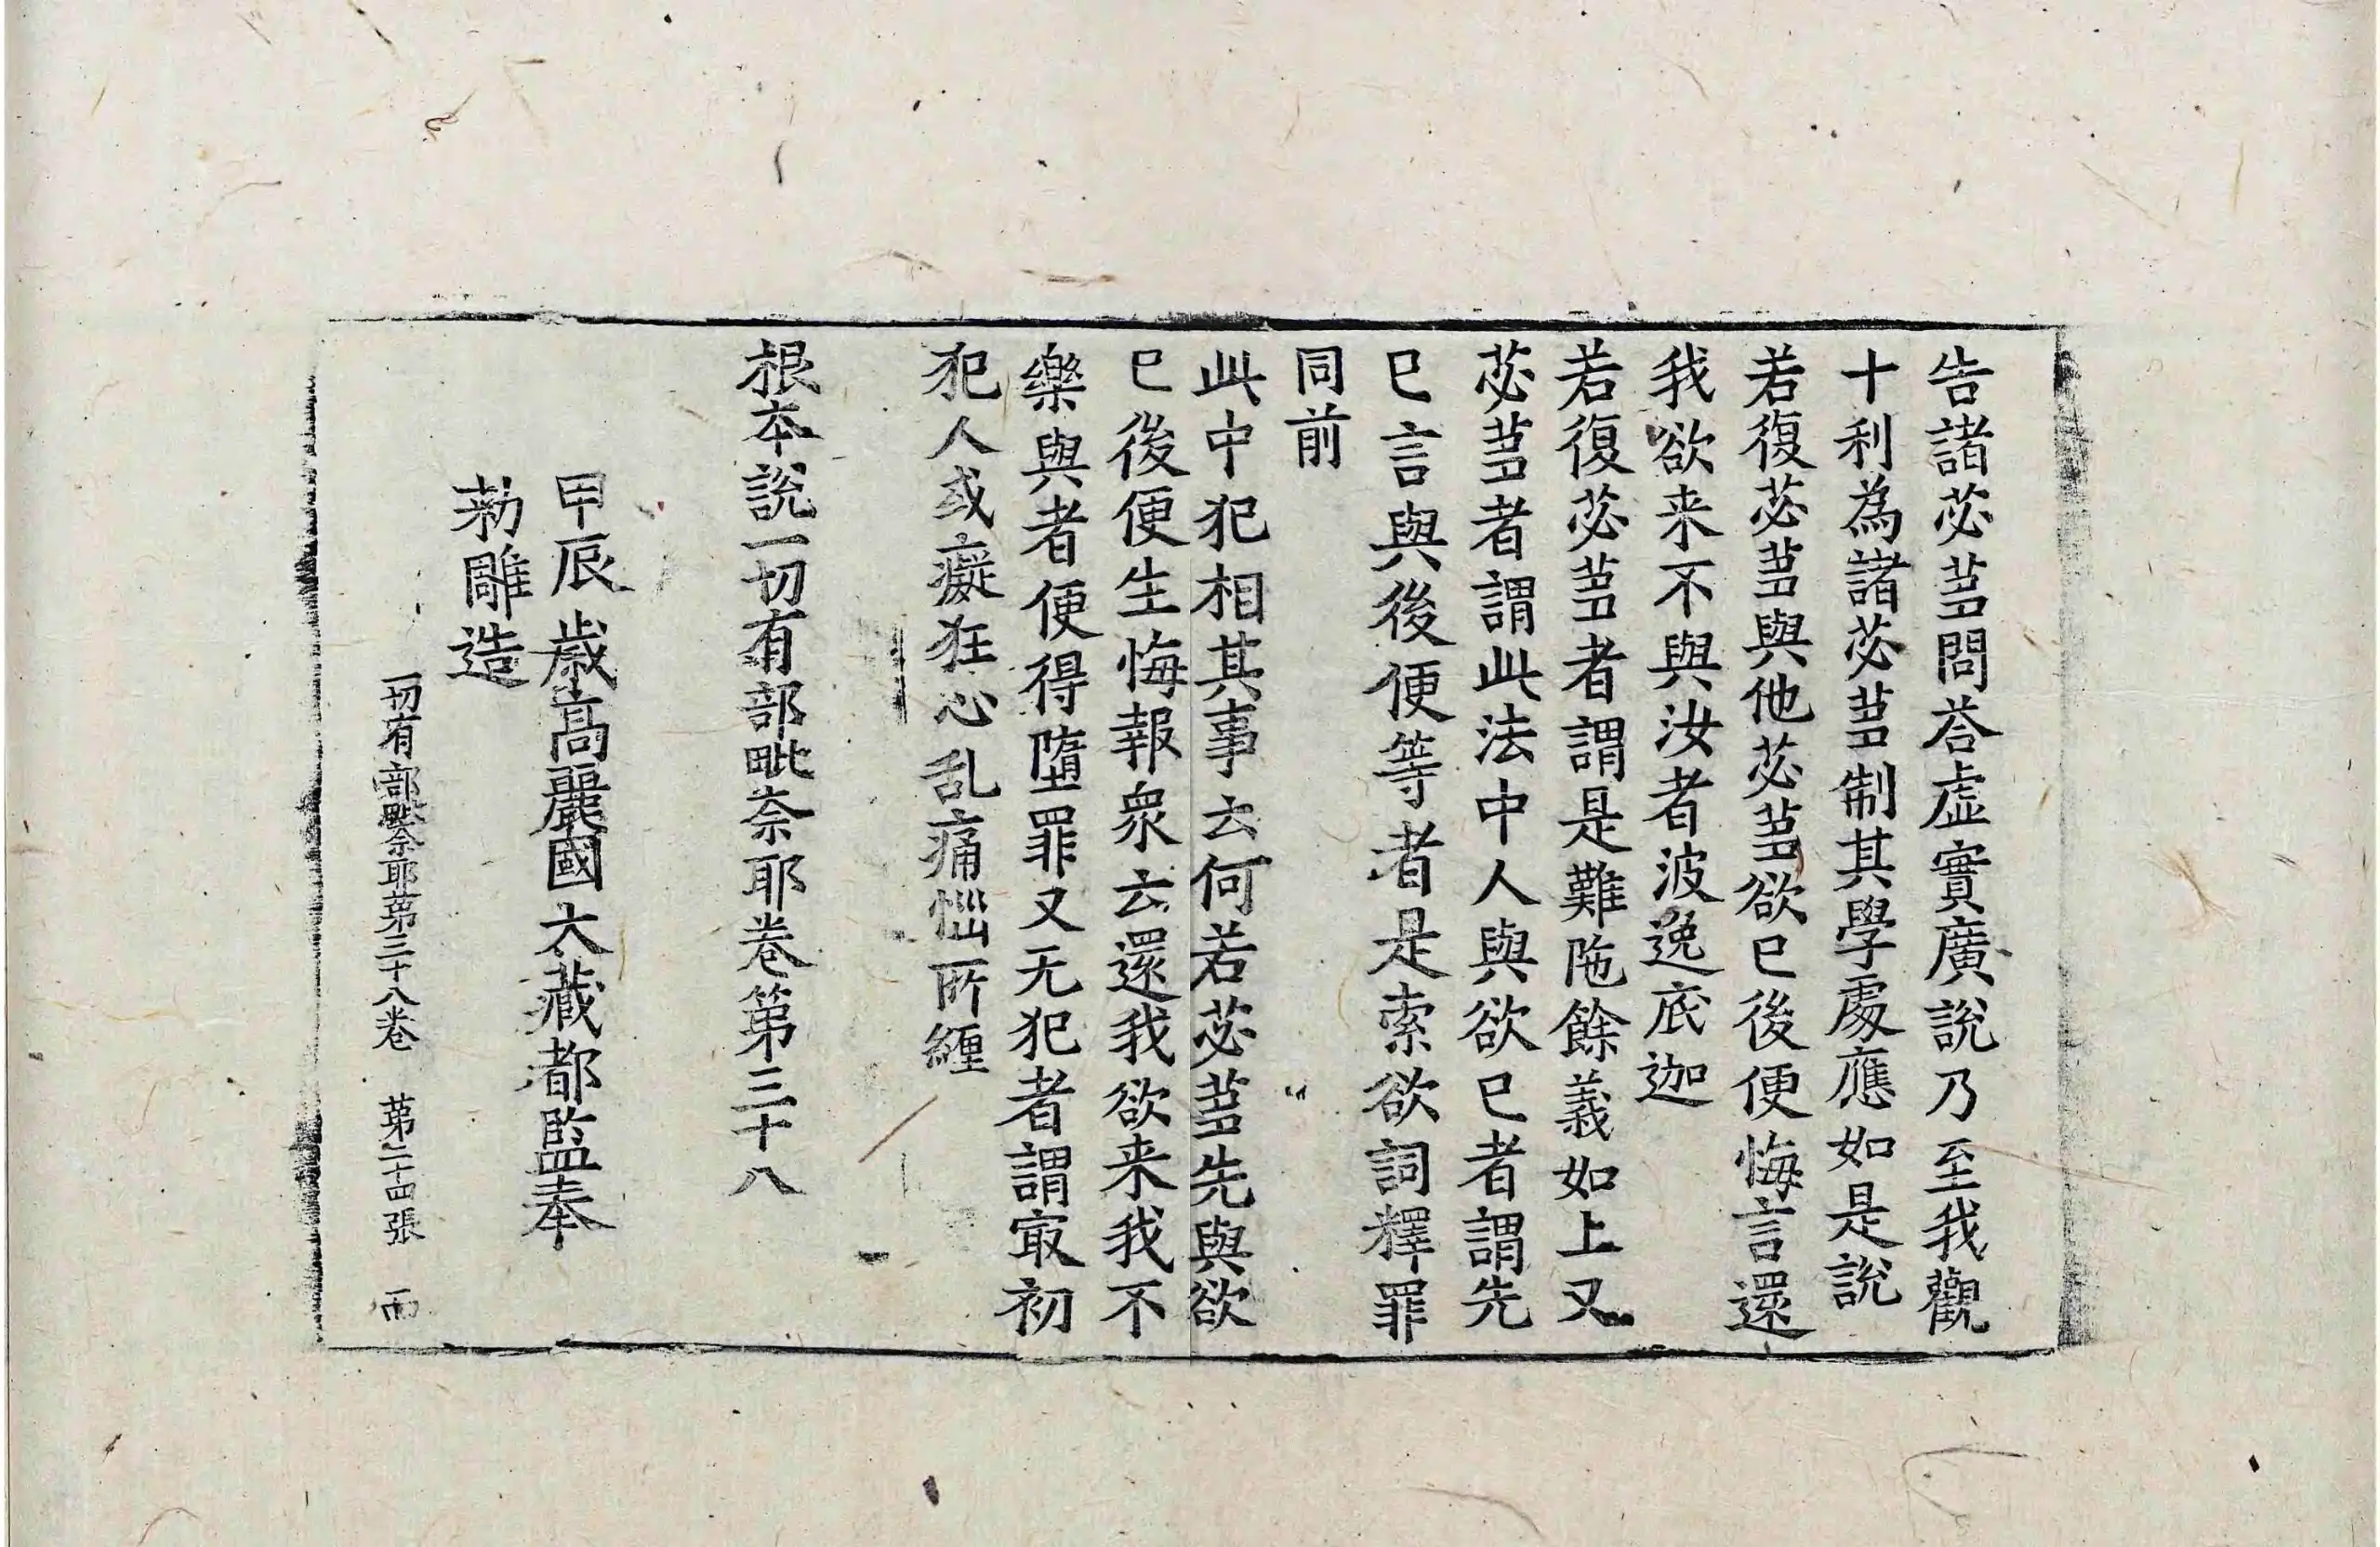 告諸苾芻問荅虛實廣說乃至我觀
十利為諸苾芻制其學處應如是說
若復苾芻與他苾芻欲已後便悔言還
我欲来不與汝者波逸底迦
若復苾芻者謂是難陁餘義如上又
苾芻者謂此法中人與欲已者謂先
已言與後便等者是索欲詞釋罪
同前
此中犯相其事云何若苾芻先與欲
已後便生悔報衆云還我欲来我不
樂與者便得墮罪又无犯者謂㝡初
犯人或癡狂心乱痛惱所纏
根本說一切有部毗奈耶卷第三十八
甲辰歲高麗國大藏都監奉
勑雕造
一切有部毗奈耶第三十八卷 第二十四張 而